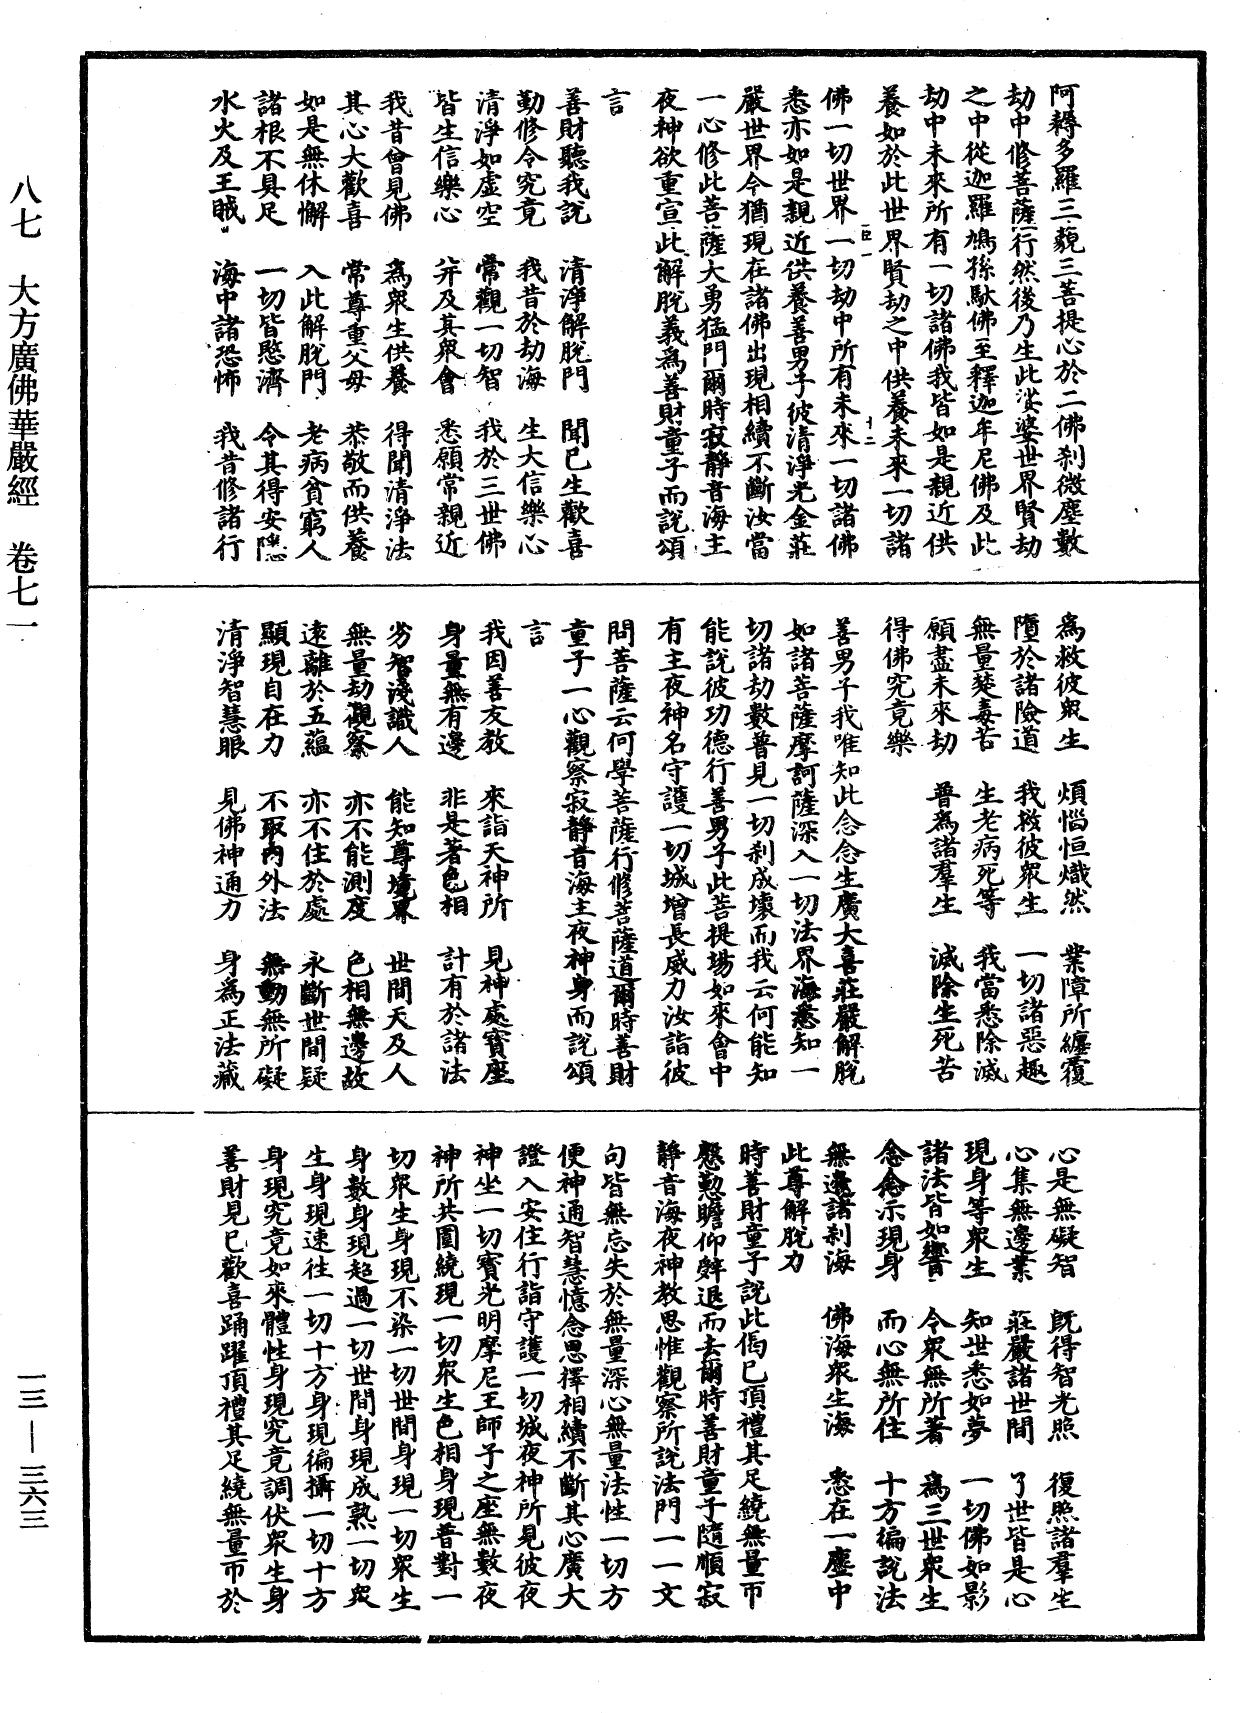 阿耨多羅三藐三菩提心於二佛刹微塵數
劫中修菩薩行然後乃生此娑婆世界賢劫
之中從迦羅鳩孫馱佛至釋迦牟尼佛及此
劫中未來所有一切諸佛我皆如是親近供
養如於此世界賢劫之中供養未來一切諸
佛一切世界一切劫中所有未來一切諸佛
悉亦如是親近供養善男子彼清淨光金莊
嚴世界今猶現在諸佛出現相續不斷汝當
一心修此菩薩大勇猛門爾時寂靜音海主
夜神欲重宣此解脫義為善財童子而說頌
言
善財聽我說 清淨解脫門 聞已生歡喜
勤修令究竟 我昔於劫海 生大信樂心
清淨如虛空 常觀一切智 我於三世佛
皆生信樂心 并及其眾會 悉願常親近
我昔曾見佛 為眾生供養 得聞清淨法
其心大歡喜 常尊重父母 恭敬而供養
如是無休懈 入此解脫門 老病貧窮人
諸根不具足 一切皆愍濟 令其得安隱
水火及王賊 海中諸恐怖 我昔修諸行
為救彼眾生 煩惱恒熾然 業障所纏覆
墮於諸險道 我救彼眾生 一切諸惡趣
無量楚毒苦 生老病死等 我當悉除滅
願盡未來劫 普為諸羣生 滅除生死苦
得佛究竟樂
善男子我唯知此念念生廣大喜莊嚴解脫
如諸菩薩摩訶薩深入一切法界海悉知一
切諸劫數普見一切刹成壞而我云何能知
能說彼功德行善男子此菩提場如來會中
有主夜神名守護一切城增長威力汝詣彼
問菩薩云何學菩薩行修菩薩道爾時善財
童子一心觀察寂靜音海主夜神身而說頌
言
我因善友教 來詣天神所 見神處寶座
身量無有邊 非是著色相 計有於諸法
劣智淺識人 能知尊境界 世間天及人
無量劫觀察 亦不能測度 色相無邊故
遠離於五蘊 亦不住於處 永斷世間疑
顯現自在力 不取內外法 無動無所礙
清淨智慧眼 見佛神通力 身為正法藏
心是無礙智 既得智光照 復照諸羣生
心集無邊業 莊嚴諸世間 了世皆是心
現身等眾生 知世悉如夢 一切佛如影
諸法皆如響 令眾無所著 為三世眾生
念念示現身 而心無所住 十方徧說法
無邊諸刹海 佛海眾生海 悉在一塵中
此尊解脫力
時善財童子說此偈已頂禮其足繞無量帀
慇懃瞻仰辭退而去爾時善財童子隨順寂
靜音海夜神教思惟觀察所說法門一一文
句皆無忘失於無量深心無量法性一切方
便神通智慧憶念思擇相續不斷其心廣大
證入安住行詣守護一切城夜神所見彼夜
神坐一切寶光明摩尼王師子之座無數夜
神所共圍繞現一切眾生色相身現普對一
切眾生身現不染一切世間身現一切眾生
身數身現超過一切世間身現成熟一切眾
生身現速往一切十方身現徧攝一切十方
身現究竟如來體性身現究竟調伏眾生身
善財見已歡喜踊躍頂禮其足繞無量帀於
八七 大方廣佛華嚴經 卷七一
一三—三六三